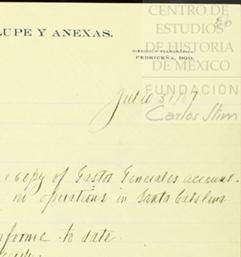 CENTRO DE
ESTUDIOS
DE HISTORIA
DE MÉXICO
FUNDACIÓN
Carlos Slim
LUPE Y ANEXAS.
PEDRICEÑA, DGO.
Julio 3/07
copy of Gastos Generales account
no operations in Santa Catalina
informe to date